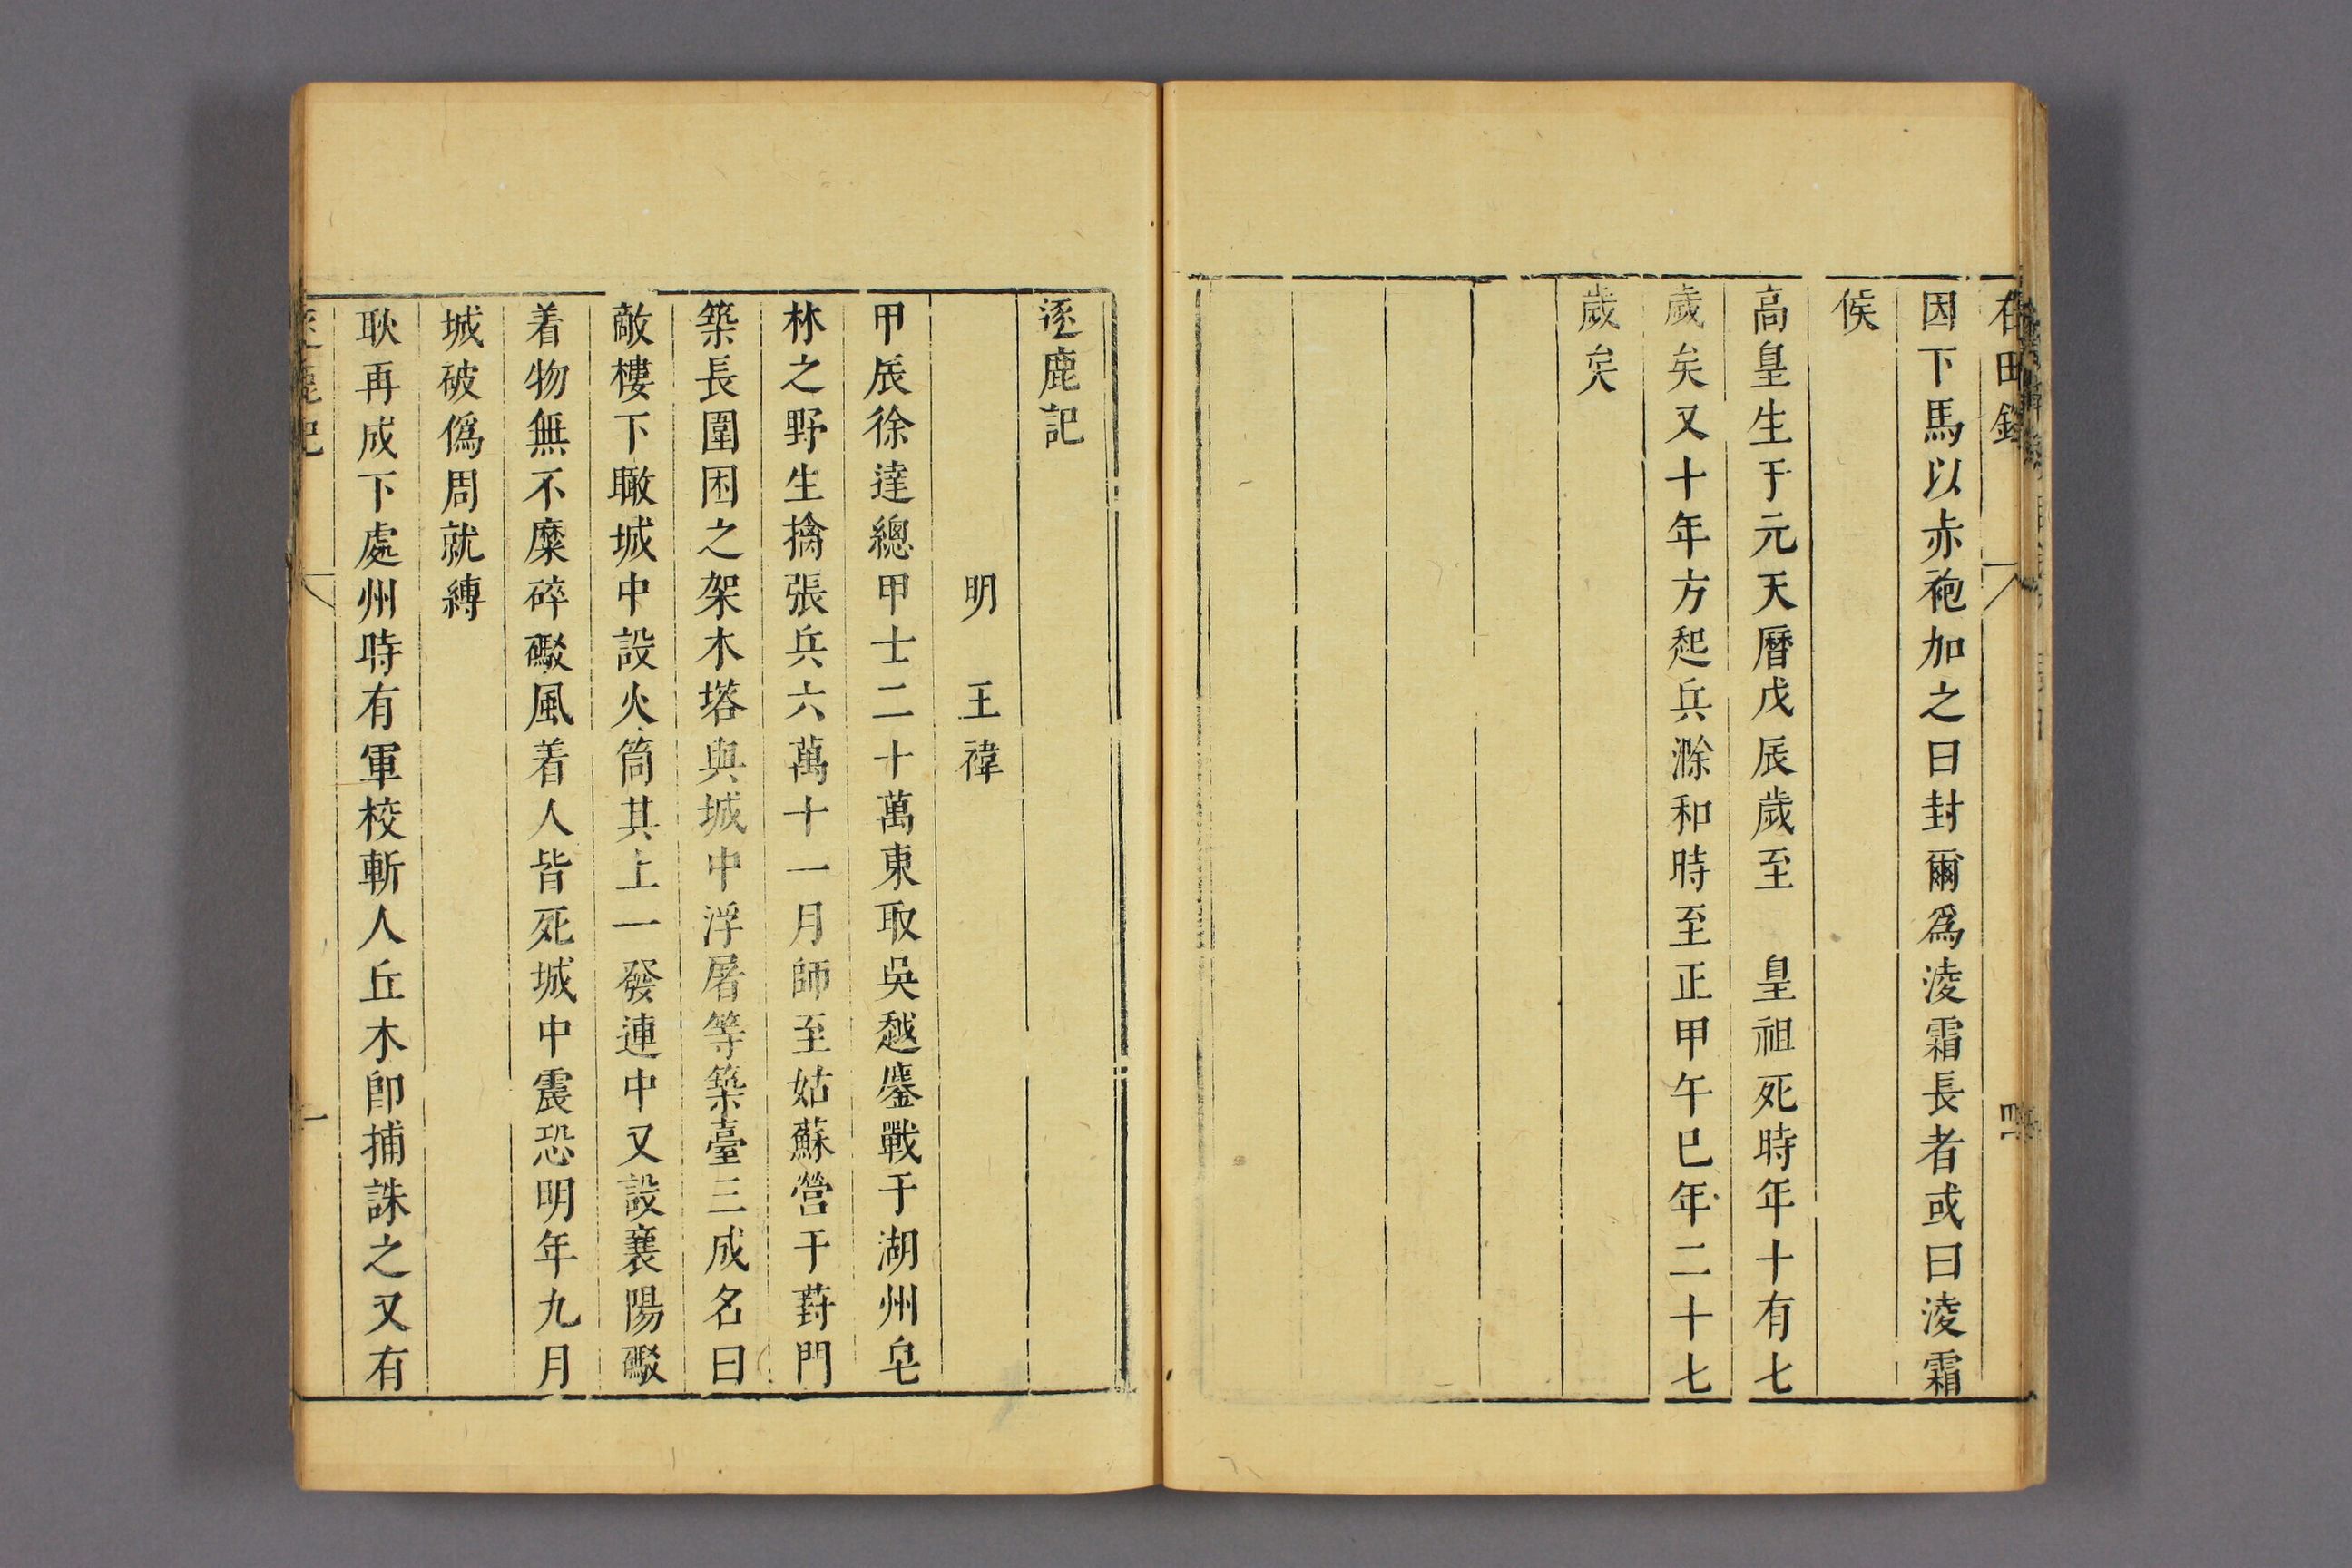 在田錄
四
因下馬以赤袍加之曰封爾爲淩霜長者或曰淩霜
侯
高皇生于元天曆戊辰歲至　皇祖死時年十有七
歲矣又十年方起兵滁和時至正甲午巳年二十七
歲矣
逐鹿記
明　王禕
甲辰徐達總甲士二十萬東取吳越鏖戰于湖州皂
林之野生擒張兵六萬十一月師至姑蘇營于葑門
築長圍困之架木塔與城中浮屠等築臺三成名曰
敵樓下瞰城中設火筒其上一發連中又設襄陽礮
着物無不糜碎礮風着人皆死城中震恐明年九月
城破僞周就縛
耿再成下處州時有軍校斬人丘木卽捕誅之又有
逐鹿記
一